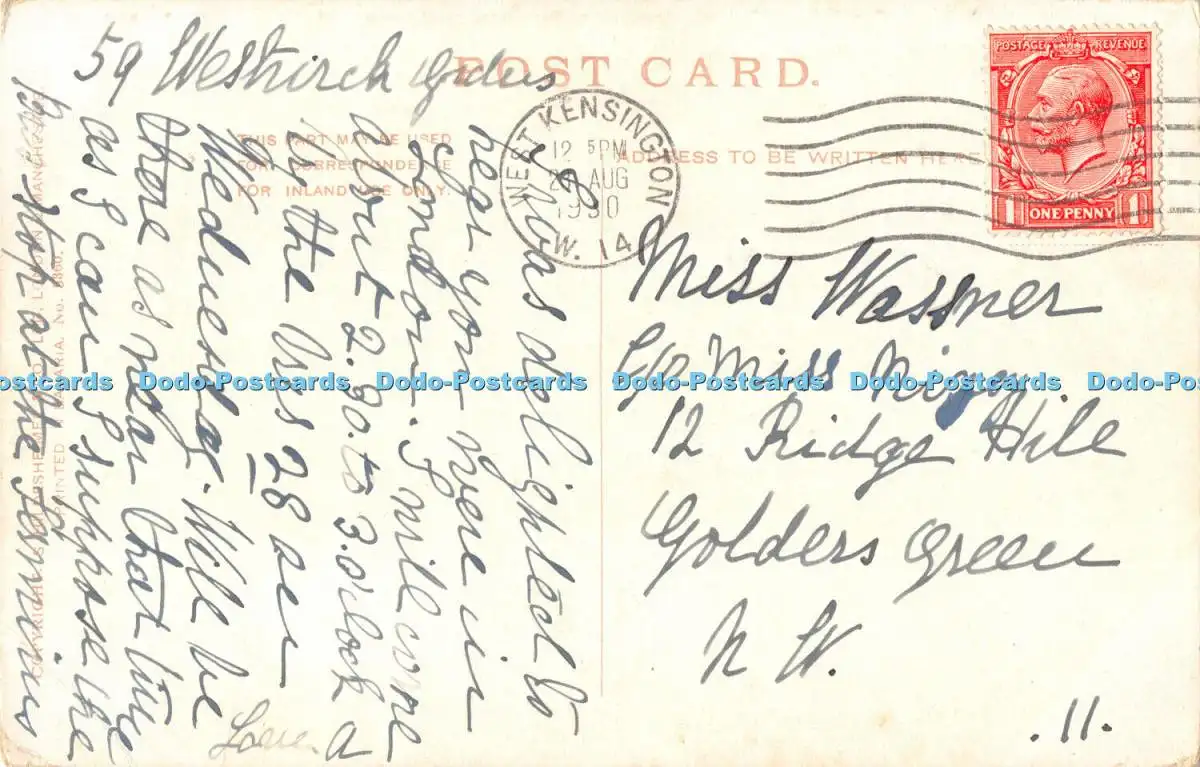 POST CARD.
59
THIS PART MAY BE USED
FOR CORRESPONDENCE
FOR INLAND USE ONLY.
ADDRESS TO BE WRITTEN HERE
WEST KENSINGTON
12 5PM
AUG
1930
W. 14
POSTAGE REVENUE
1 ONE PENNY 1
I was delighted to
hear you were in
London. I will come
about 2.30. to 3. o'clock
on the Bus 28 on
Wednesday. Will be
there as near that time
as I can I suppose the
Bus stop at the
Love. A
Miss Wassner
c/o Miss
12 Ridge Hill
Golders Green
N W.
.11.
PRINTED BAVARIA. No.
Dodo-Postcards Dodo-Postcards Dodo-Postcards Dodo-Postcards Dodo-Postcards Dodo-Postcards